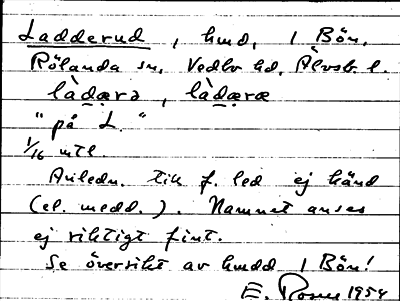 Ladderud, hmd, i Bön,
Rölanda sn, Vedbo hd, Älvsb. l.
làdærə, làdæræ
"på L."
1/16 mtl.
Anledn. till f. led ej känd
(el. medd.). Namnet anses
ej riktigt fint.
Se översikt av hmdd i Bön!
E. 1954